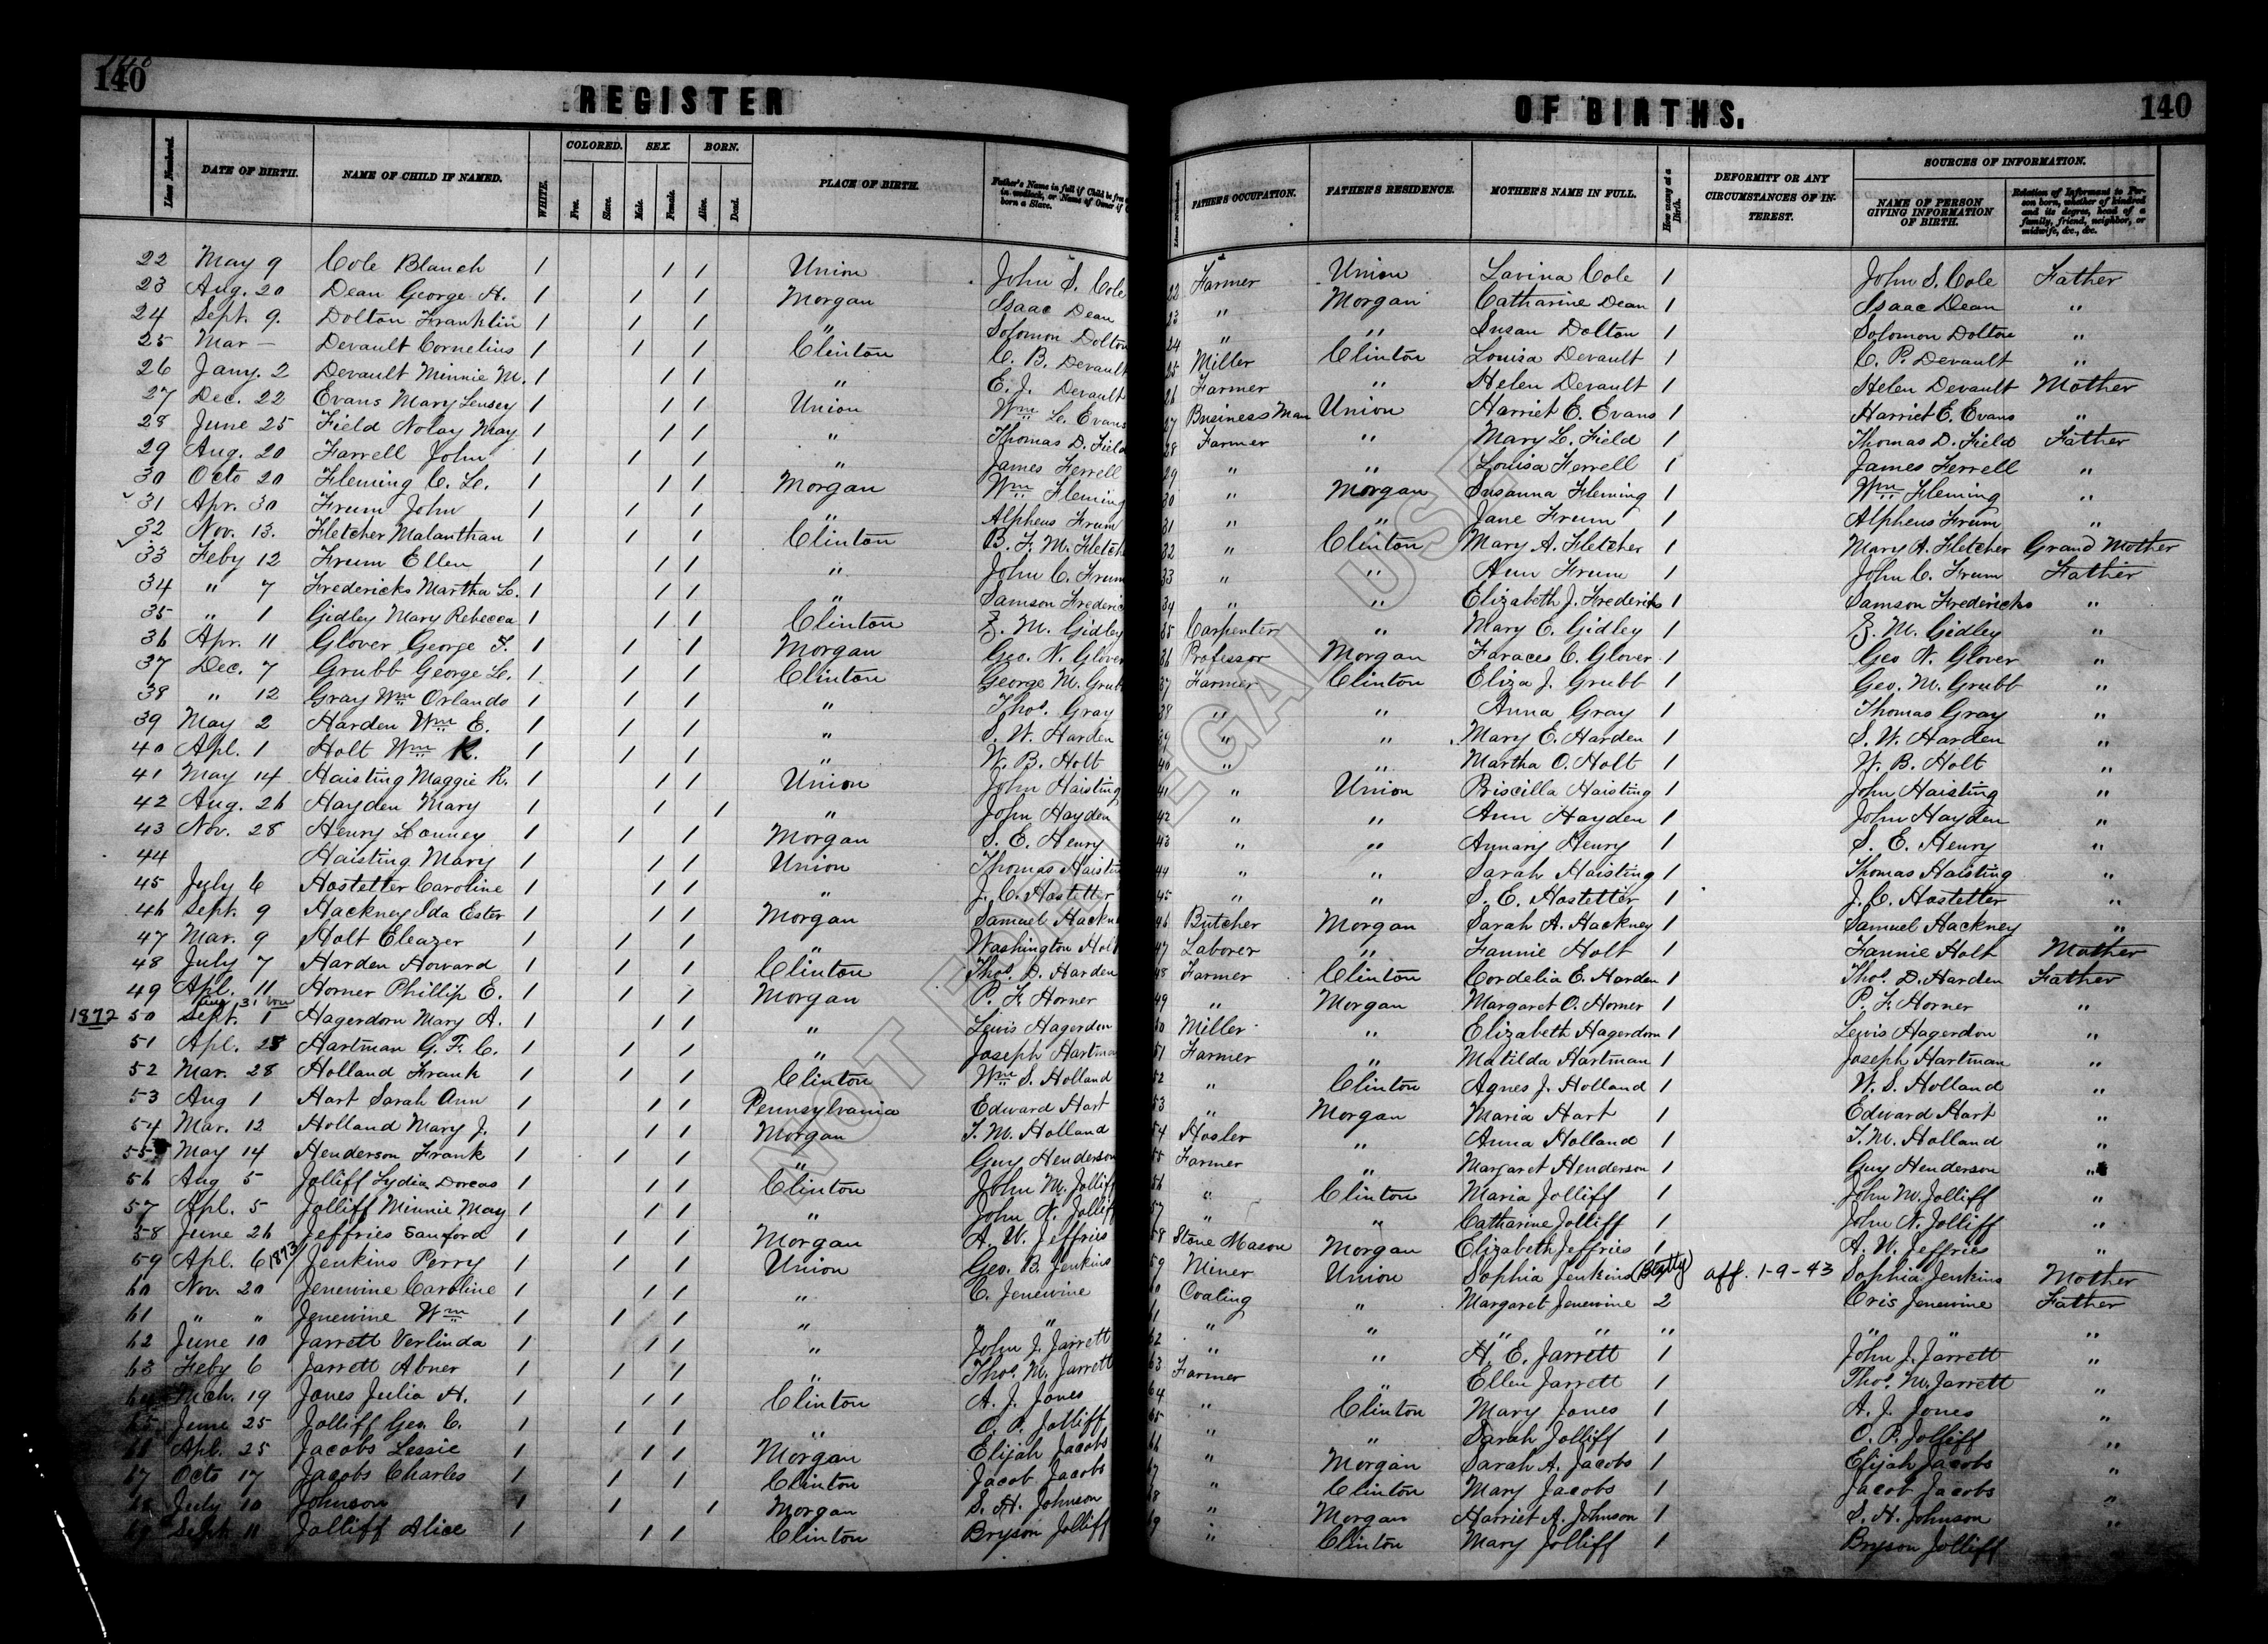 140 REGISTER OF BIRTHS. 140
Lines Numbered. DATE OF BIRTH. NAME OF CHILD IF NAMED. WHITE. COLORED. Free. Slave. SEX. Male. Female. BORN. Alive. Dead. PLACE OF BIRTH. Father's Name in full if Child be free in wedlock, or Name of Owner if born a Slave. Lines Numbered. FATHER'S OCCUPATION. FATHER'S RESIDENCE. MOTHER'S NAME IN FULL. How many at a Birth. DEFORMITY OR ANY CIRCUMSTANCES OF INTEREST. SOURCES OF INFORMATION. NAME OF PERSON GIVING INFORMATION OF BIRTH. Relation of Informant to Person born, whether of kindred and its degree, head of a family, friend, neighbor, or midwife, &c., &c.
22 May 9 Cole Blanch 1 1 1 Union John S. Cole 22 Farmer Union Lavina Cole 1 John S. Cole Father
23 Aug. 20 Dean George H. 1 1 1 Morgan Isaac Dean 23 " Morgan Catharine Dean 1 Isaac Dean "
24 Sept. 9. Dolton Franklin 1 1 1 " Solomon Dolton 24 " " Susan Dolton 1 Solomon Dolton "
25 Mar — Devault Cornelius 1 1 1 Clinton C. B. Devault 25 Miller Clinton Louisa Devault 1 C. P. Devault "
26 Jany. 2 Devault Minnie M. 1 1 1 " E. J. Devault 26 Farmer " Helen Devault 1 Helen Devault Mother
27 Dec. 22 Evans Mary Lensey 1 1 1 Union Wm L. Evans 27 Business Man Union Harriet E. Evans 1 Harriet E. Evans "
28 June 25 Field Nolay May 1 1 1 " Thomas D. Field 28 Farmer " Mary L. Field 1 Thomas D. Field Father
29 Aug. 20 Farrell John 1 1 1 " James Ferrell 29 " " Louisa Ferrell 1 James Ferrell "
30 Octo 20 Fleming C. L. 1 1 1 Morgan Wm Fleming 30 " Morgan Susanna Fleming 1 Wm Fleming "
31 Apr. 30 Frum John 1 1 1 " Alpheus Frum 31 " " Jane Frum 1 Alpheus Frum "
32 Nov. 13. Fletcher Malanthan 1 1 1 Clinton B. F. M. Fletch 32 " Clinton Mary A. Fletcher 1 Mary A. Fletcher Grand Mother
33 Feby 12 Frum Ellen 1 1 1 " John C. Frum 33 " " Ann Frum 1 John C. Frum Father
34 " 7 Fredericks Martha L. 1 1 1 " Samson Frederic 34 " " Elizabeth J. Fredericks 1 Samson Fredericks "
35 " 1 Gidley Mary Rebecca 1 1 1 Clinton Z. M. Gidley 35 Carpenter " Mary E. Gidley 1 Z. M. Gidley "
36 Apr. 11 Glover George F. 1 1 1 Morgan Geo. N. Glover 36 Professor Morgan Faraces C. Glover 1 Geo N. Glover "
37 Dec. 7 Grubb George L. 1 1 1 Clinton George M. Grubb 37 Farmer Clinton Eliza J. Grubb 1 Geo. M. Grubb "
38 " 12 Gray Wm Orlando 1 1 1 " Thos. Gray 38 " " Anna Gray 1 Thomas Gray "
39 May 2 Harden Wm E. 1 1 1 " S. W. Harden 39 " " Mary E. Harden 1 S. W. Harden "
40 Apl. 1 Holt Wm K. 1 1 1 " W. B. Holt 40 " " Martha O. Holt 1 W. B. Holt "
41 May 14 Haisting Maggie R. 1 1 1 Union John Haisting 41 " Union Priscilla Haisting 1 John Haisting "
42 Aug. 26 Hayden Mary 1 1 1 " John Hayden 42 " " Ann Hayden 1 John Hayden "
43 Nov. 28 Henry Lonney 1 1 1 Morgan S. E. Henry 43 " " Annary Henry 1 S. E. Henry "
44 Haisting Mary 1 1 1 Union Thomas Haistin 44 " " Sarah Haisting 1 Thomas Haisting "
45 July 6 Hostetter Caroline 1 1 1 " J. C. Hostetter 45 " " S. E. Hostetter 1 J. C. Hostetter "
46 Sept. 9 Hackney Ida Ester 1 1 1 Morgan Samuel Hackn 46 Butcher Morgan Sarah A. Hackney 1 Samuel Hackney "
47 Mar. 9 Holt Eleazer 1 1 1 " Washington Holt 47 Laborer " Fannie Holt 1 Fannie Holt Mother
48 July 7 Harden Howard 1 1 1 Clinton Thos. D. Harden 48 Farmer Clinton Cordelia E. Harden 1 Thos. D. Harden Father
49 Apl. 11 Horner Phillip E. 1 1 1 Morgan P. F. Horner 49 " Morgan Margaret O. Horner 1 P. F. Horner "
Aug. 31
1872 50 Sept. 1 Hagerdorn Mary A. 1 1 1 " Lewis Hagerdon 50 Miller " Elizabeth Hagerdorn 1 Lewis Hagerdon "
51 Apl. 28 Hartman G. F. C. 1 1 1 " Joseph Hartman 51 Farmer " Matilda Hartman 1 Joseph Hartman "
52 Mar. 28 Holland Frank 1 1 1 Clinton Wm S. Holland 52 " Clinton Agnes J. Holland 1 W. S. Holland "
53 Aug 1 Hart Sarah Ann 1 1 1 Pennsylvania Edward Hart 53 " Morgan Maria Hart 1 Edward Hart "
54 Mar. 12 Holland Mary J. 1 1 1 Morgan T. M. Holland 54 Hosler " Anna Holland 1 T. M. Holland "
55 May 14 Henderson Frank 1 1 1 " Guy Henderson 55 Farmer " Margaret Henderson 1 Guy Henderson "
56 Aug 5 Jolliff Lydia Dorcas 1 1 1 Clinton John M. Jolliff 56 " Clinton Maria Jolliff 1 John M. Jolliff "
57 Apl. 5 Jolliff Minnie May 1 1 1 " John N. Jolliff 57 " " Catharine Jolliff 1 John N. Jolliff "
58 June 26 Jeffries Sanford 1 1 1 Morgan A. W. Jeffries 58 Stone Mason Morgan Elizabeth Jeffries 1 A. W. Jeffries "
59 Apl. 6 1873 Jenkins Perry 1 1 1 Union Geo. B. Jenkins 59 Miner Union Sophia Jenkins (Beatty) 1 aff. 1-9-43 Sophia Jenkins Mother
60 Nov. 20 Jenewine Caroline 1 1 1 " C. Jenewine 60 Coaling " Margaret Jenewine 2 Cris Jenewine Father
61 " " Jenewine Wm 1 1 1 " " 61 " " " " " " " "
62 June 10 Jarrett Verlinda 1 1 1 " John J. Jarrett 62 " " H. E. Jarrett 1 John J. Jarrett "
63 Feby 6 Jarrett Abner 1 1 1 " Thos. M. Jarrett 63 Farmer " Ellen Jarrett 1 Thos. M. Jarrett "
64 Mch. 19 Jones Julia H. 1 1 1 Clinton A. J. Jones 64 " Clinton Mary Jones 1 A. J. Jones "
65 June 25 Jolliff Geo. C. 1 1 1 " O. P. Jolliff 65 " " Sarah Jolliff 1 O. P. Jolliff "
66 Apl. 25 Jacobs Lessie 1 1 1 Morgan Elijah Jacobs 66 " Morgan Sarah A. Jacobs 1 Elijah Jacobs "
67 Octo 17 Jacobs Charles 1 1 1 Clinton Jacob Jacobs 67 " Clinton Mary Jacobs 1 Jacob Jacobs "
68 July 10 Johnson 1 1 1 Morgan S. H. Johnson 68 " Morgan Harriet A. Johnson 1 S. H. Johnson "
69 Sept. 11 Jolliff Alice 1 1 1 Clinton Bryson Jolliff 69 " Clinton Mary Jolliff 1 Bryson Jolliff
NOT FOR LEGAL USE